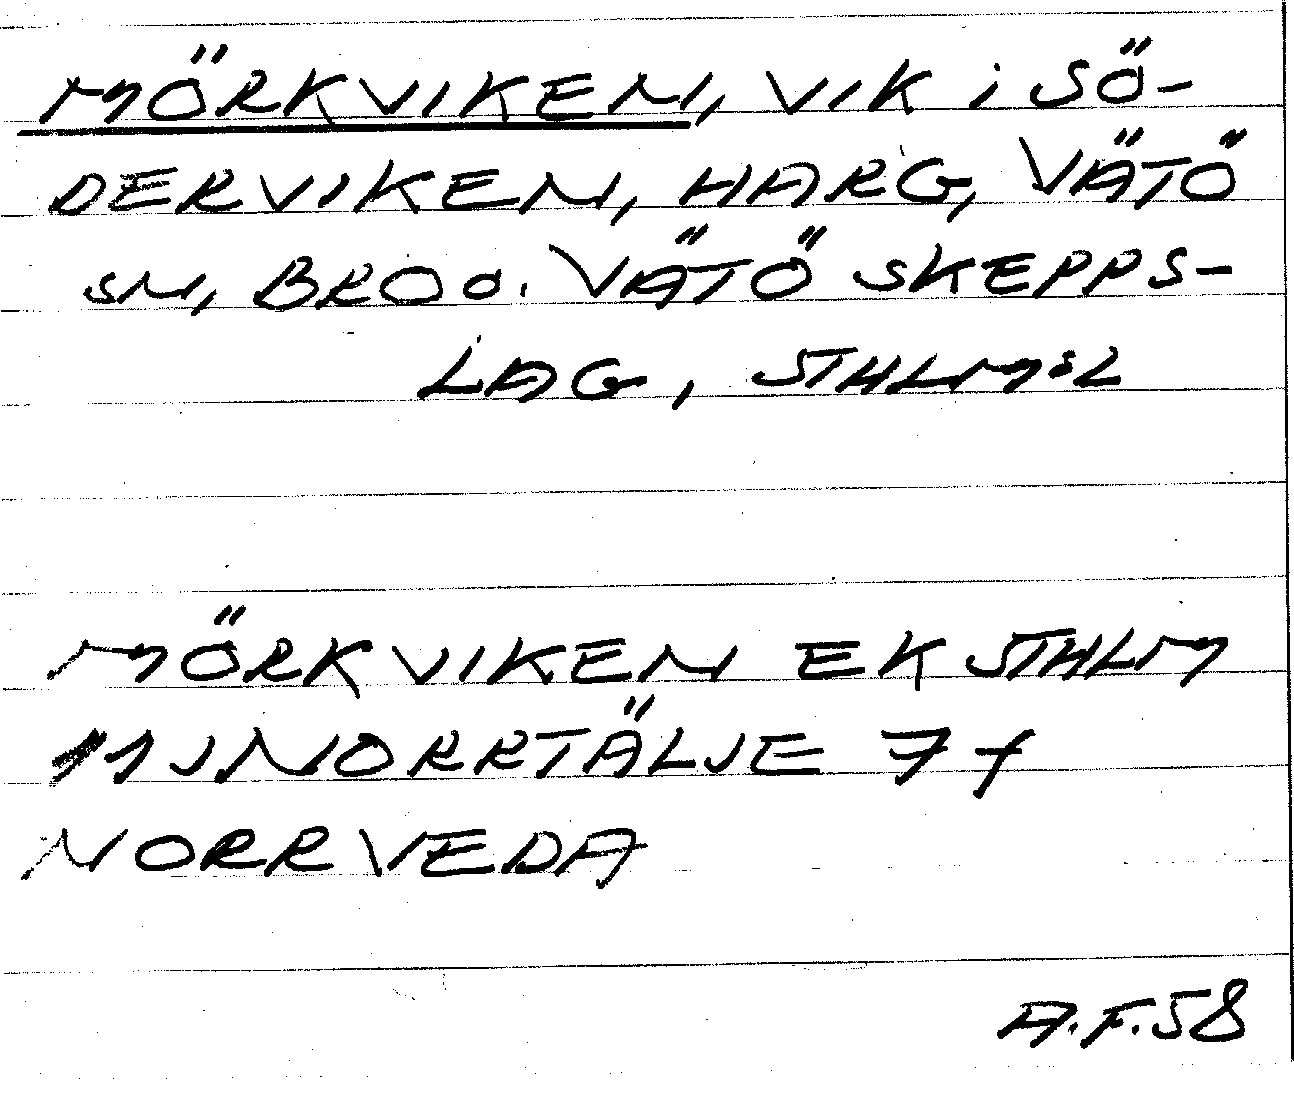 MÖRKVIKEN, VIK i SÖ-
DERVIKEN, HARG, VÄTÖ
SN, BRO O. VÄTÖ SKEPPS-
LAG, STHLM:S L
MÖRKVIKEN EK STHLM
11J NORRTÄLJE 7f
NORRVEDA
A.F.58